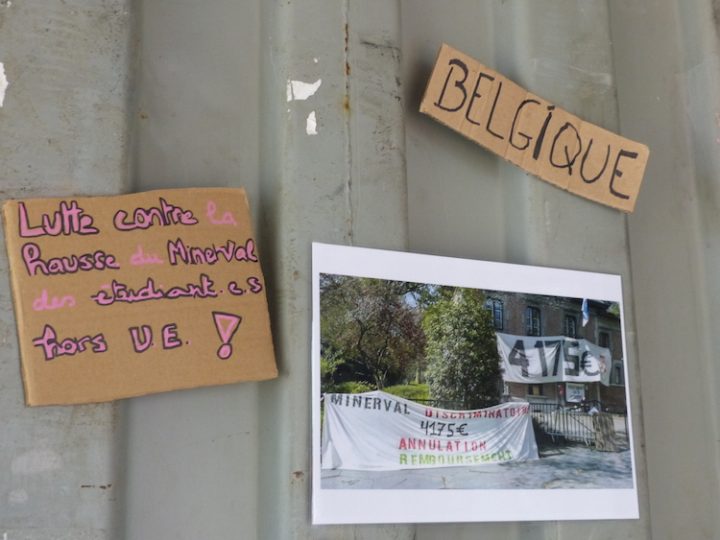 BELGIQUE
Lutte contre la
hausse du Minerval
des étudiant.e.s
hors U.E. !
4175€
MINERVAL DISCRIMINATOIRE
4175€
ANNULATION
REMBOURSEMENT